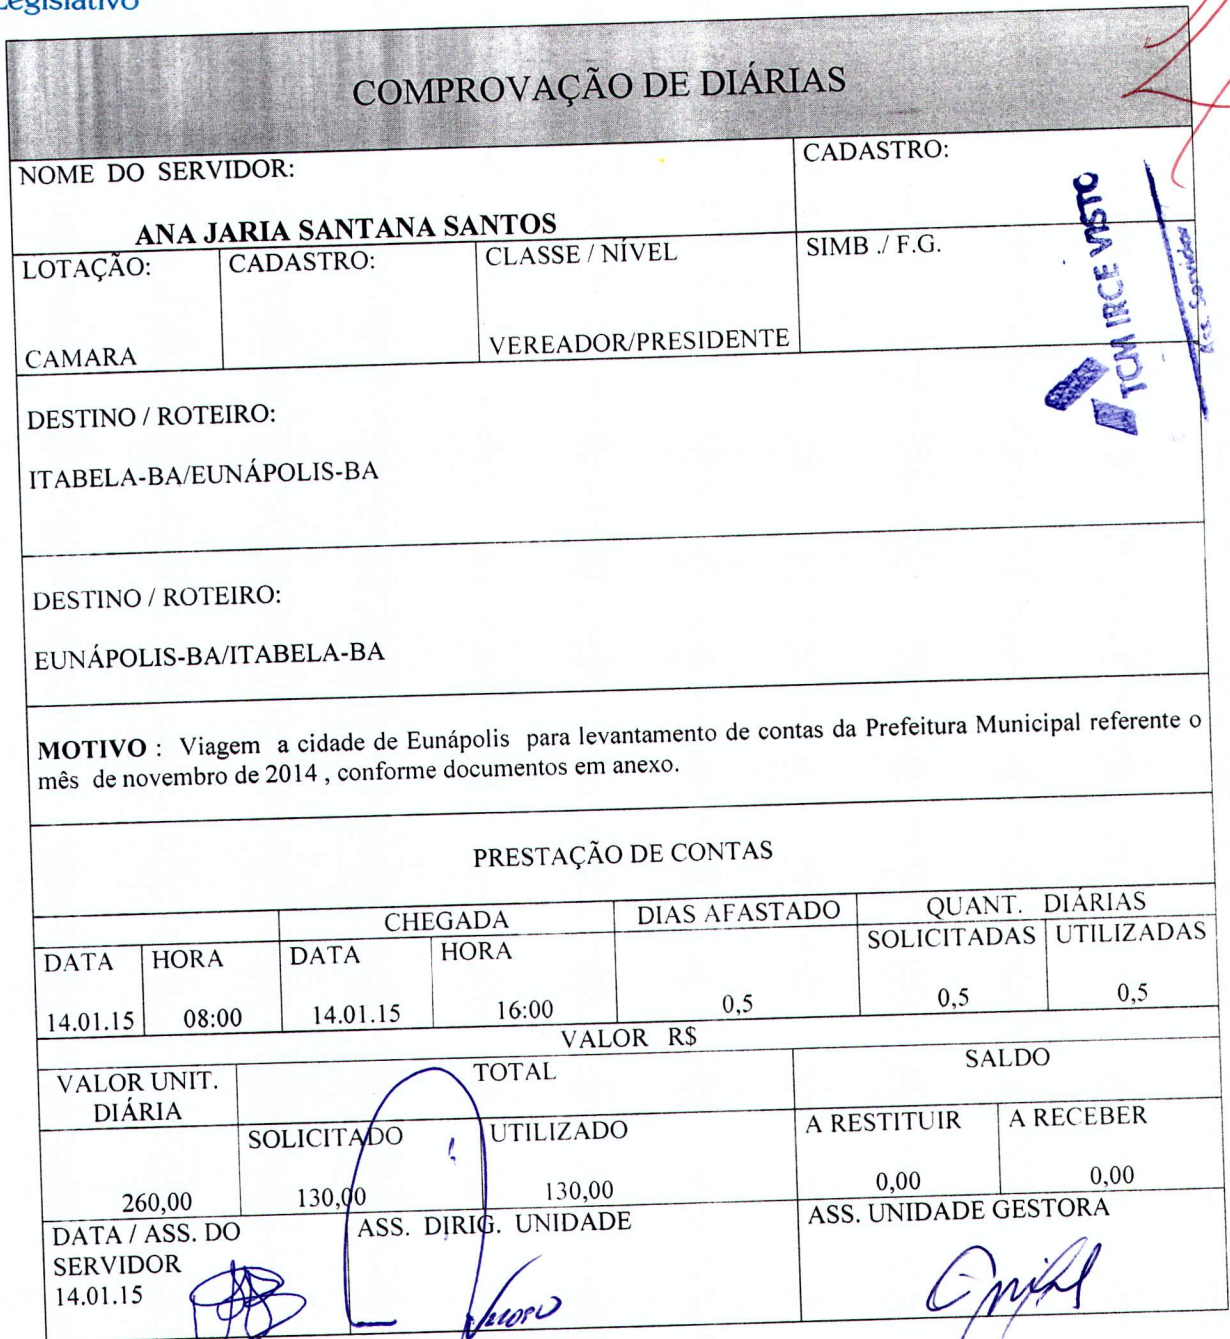 Legislativo
COMPROVAÇÃO DE DIÁRIAS
NOME DO SERVIDOR:
CADASTRO:
ANA JARIA SANTANA SANTOS
LOTAÇÃO:
CADASTRO:
CLASSE / NÍVEL
SIMB ./ F.G.
CAMARA
VEREADOR/PRESIDENTE
TCM IRCE VISTO
Ass. Servidor
DESTINO / ROTEIRO:
ITABELA-BA/EUNÁPOLIS-BA
DESTINO / ROTEIRO:
EUNÁPOLIS-BA/ITABELA-BA
MOTIVO : Viagem a cidade de Eunápolis para levantamento de contas da Prefeitura Municipal referente o
mês de novembro de 2014 , conforme documentos em anexo.
PRESTAÇÃO DE CONTAS
CHEGADA DIAS AFASTADO QUANT. DIÁRIAS
DATA HORA DATA HORA SOLICITADAS UTILIZADAS
14.01.15 08:00 14.01.15 16:00 0,5 0,5 0,5
VALOR R$
VALOR UNIT. TOTAL SALDO
DIÁRIA
SOLICITADO UTILIZADO A RESTITUIR A RECEBER
260,00 130,00 130,00 0,00 0,00
DATA / ASS. DO ASS. DIRIG. UNIDADE ASS. UNIDADE GESTORA
SERVIDOR
14.01.15